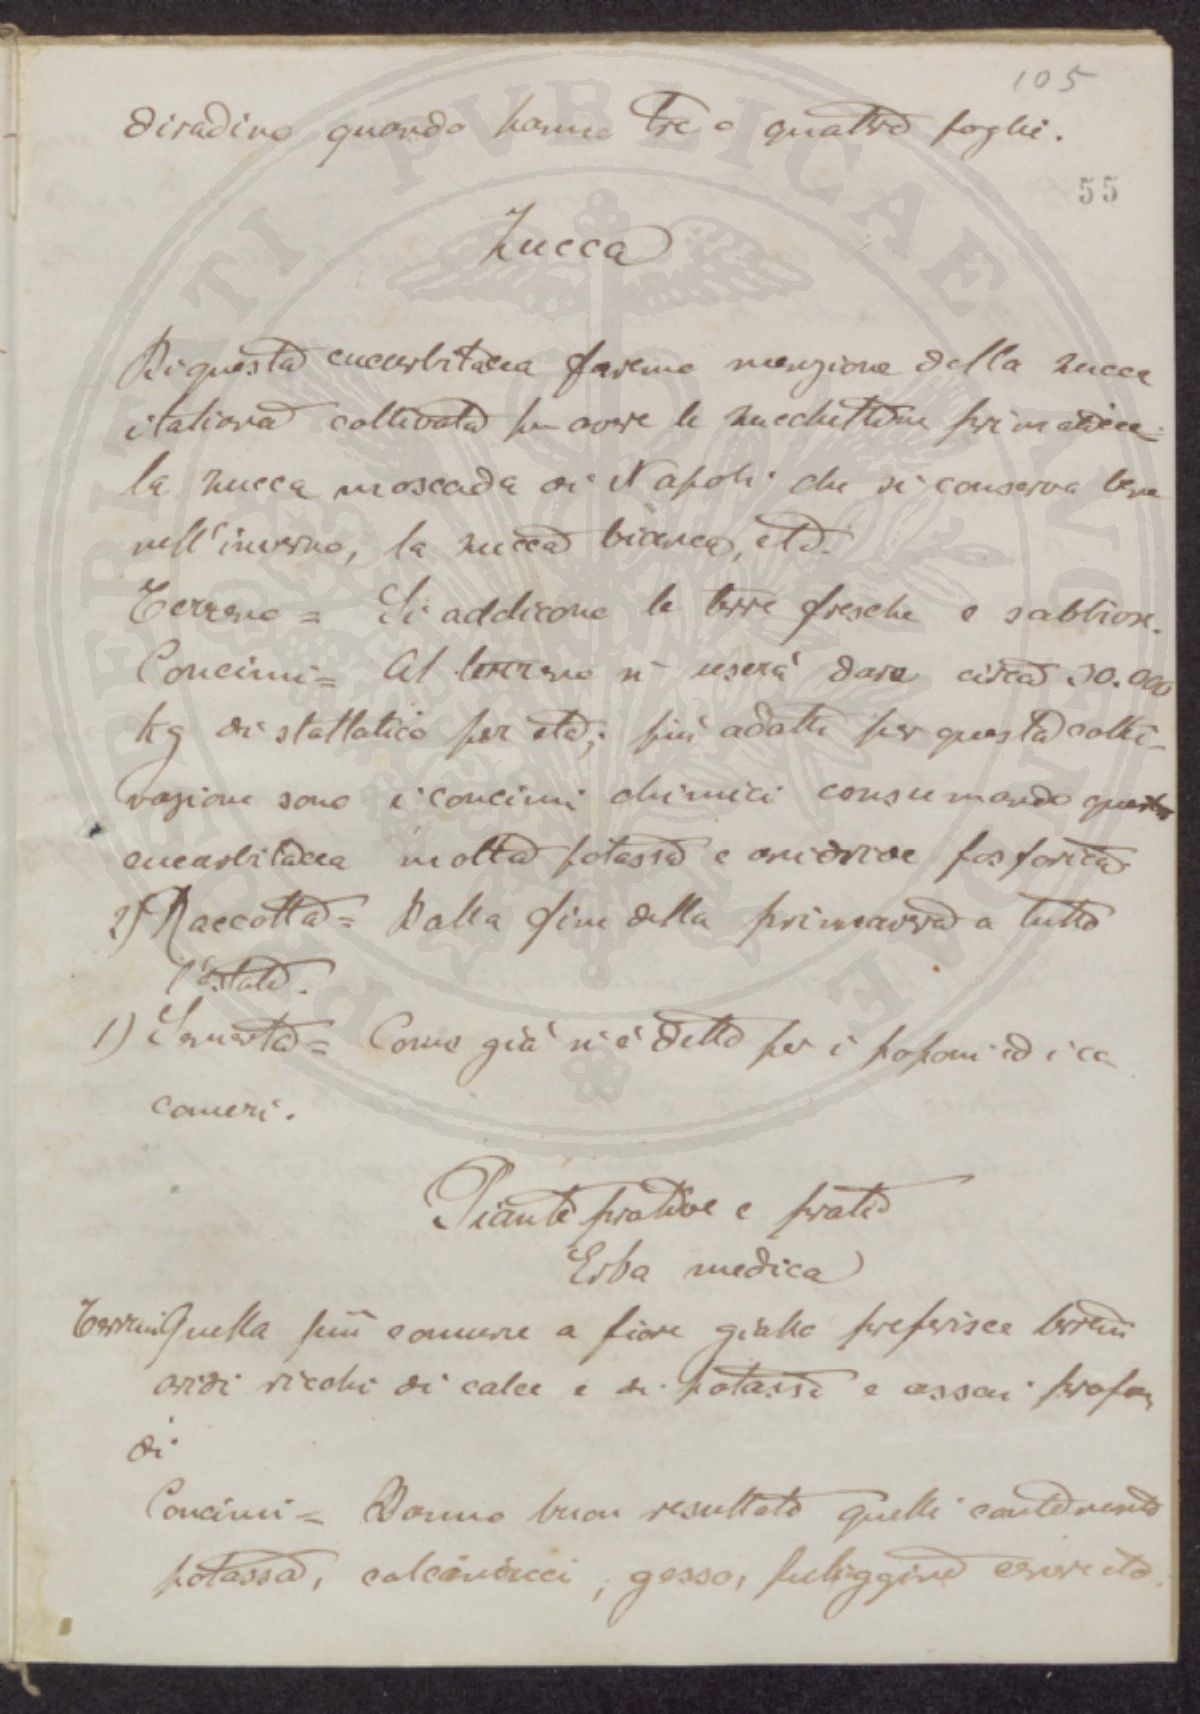 105
diradino quando hanno tre o quattro foglie.
55
Zucca
Di questa cucurbitacea faremo menzione della zucca
italiana coltivata per avere le zucchettine primaticce
la zucca moscada di Napoli che si conserva bene
nell'inverno, la zucca bianca, etc.
Terreno = Si addicono le terre fresche e sabbiose.
Concimi = Al terreno si userà dare circa 30.000
kg di stallatico per eta; più adatti per questa colti-
vazione sono i concimi chimici consumando questa
cucurbitacea molta potassa e anidride fosforica.
2) Raccolta = Dalla fine della primavera a tutta
l'estate.
1) Semente = Come già si è detto per i poponi ed i co
comeri.
Piante prative e prati
Erba medica
Terreni Quella più comune a fiore giallo preferisce terreni
aridi ricchi di calce e di potassa e assai profon
di
Concimi = Danno buon resultato quelli contenenti
potassa, calcinacci, gesso, fuliggine cenere etc.
PERITATI PVBLICAE